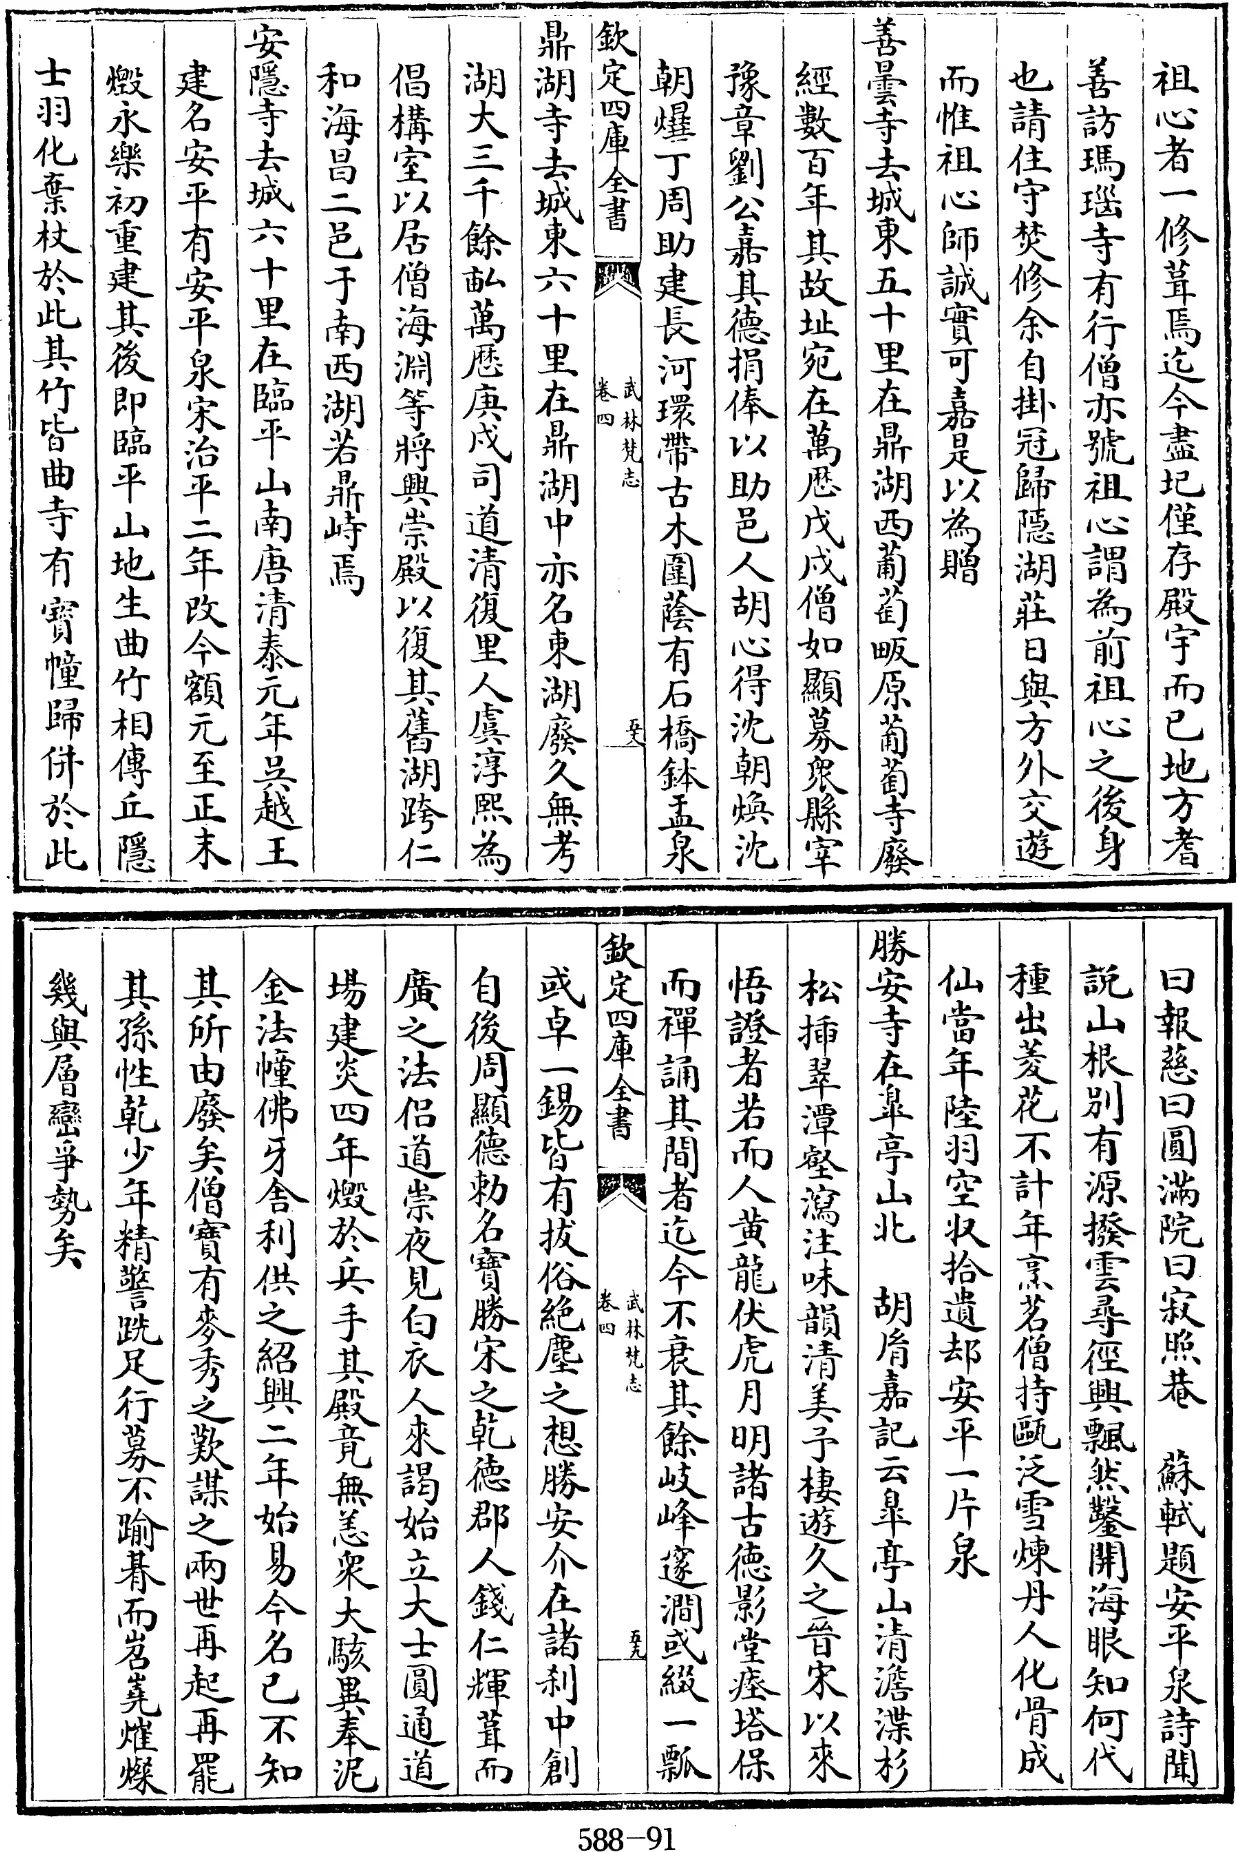 祖心者一修葺焉迄今盡圮僅存殿宇而已地方耆
善訪瑪瑙寺有行僧亦號祖心謂為前祖心之後身
也請住守焚修余自掛冠歸隱湖莊日與方外交遊
而惟祖心師誠實可嘉是以為贈
善曇寺去城東五十里在鼎湖西葡萄畈原葡萄寺廢
經數百年其故址宛在萬厯戊戌僧如顯募衆縣宰
豫章劉公嘉其德捐俸以助邑人胡心得沈朝煥沈
朝爗丁周助建長河環帶古木圍蔭有石橋鉢盂泉
欽定四庫全書
武林梵志
卷四
五八
鼎湖寺去城東六十里在鼎湖中亦名東湖廢久無考
湖大三千餘畝萬厯庚戌司道清復里人虞淳熙為
倡構室以居僧海淵等將興崇殿以復其舊湖跨仁
和海昌二邑于南西湖若鼎峙焉
安隱寺去城六十里在臨平山南唐清泰元年吳越王
建名安平有安平泉宋治平二年改今額元至正末
燬永樂初重建其後即臨平山地生曲竹相傳丘隱
士羽化棄杖於此其竹皆曲寺有寳幢歸併於此
曰報慈曰圓滿院曰寂照菴 蘇軾題安平泉詩聞
說山根別有源撥雲尋徑興飄然鑿開海眼知何代
種出菱花不計年烹茗僧持甌泛雪煉丹人化骨成
仙當年陸羽空収拾遺却安平一片泉
勝安寺在臯亭山北 胡胤嘉記云臯亭山清澹渫杉
松插翠潭壑瀉注味韻清美予棲遊久之晉宋以來
悟證者若而人黄龍伏虎月明諸古德影堂瘞塔保
而禪誦其間者迄今不衰其餘岐峰邃澗或綴一瓢
欽定四庫全書
武林梵志
卷四
五九
或卓一錫皆有拔俗絶塵之想勝安介在諸刹中創
自後周顯德勅名寳勝宋之乾德郡人錢仁輝葺而
廣之法侶道崇夜見白衣人來謁始立大士圓通道
場建炎四年燬於兵手其殿竟無恙衆大駭異奉泥
金法幢佛牙舎利供之紹興二年始易今名已不知
其所由廢矣僧寳有麥秀之歎謀之兩世再起再罷
其孫性乾少年精誓跣足行募不踰朞而岧嶤燿燦
幾與層巒爭勢矣
588-91